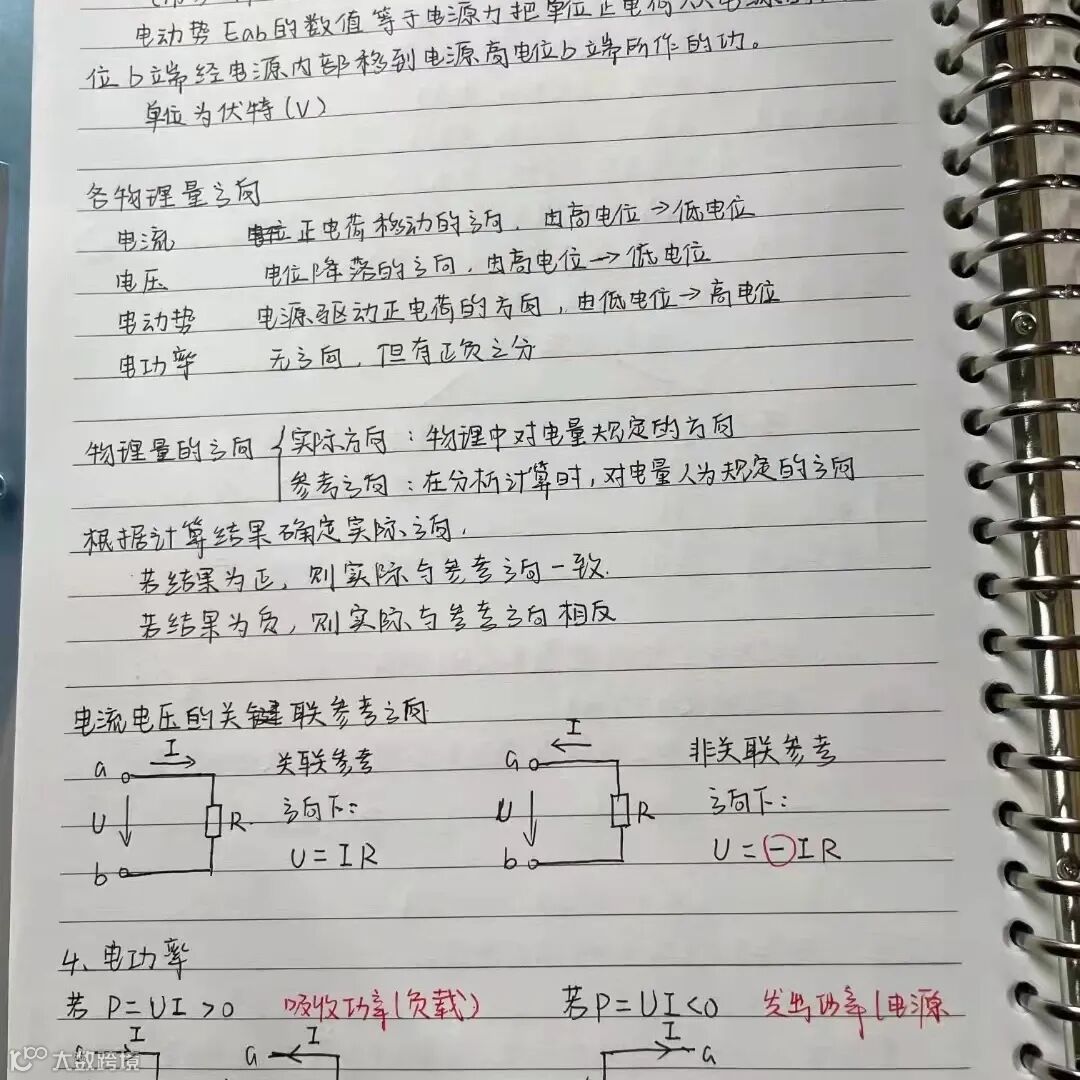 电动势Eab的数值等于电源力把单位正电荷从电源
位b端经电源内部移到电源高电位b端所作的功。
单位为伏特(V)
各物理量方向
电流 正电荷移动的方向,由高电位→低电位
电压 电位降落的方向,由高电位→低电位
电动势 电源驱动正电荷的方向,由低电位→高电位
电功率 无方向,但有正负之分
物理量的方向 实际方向:物理中对电量规定的方向
参考方向:在分析计算时,对电量人为规定的方向
根据计算结果确定实际方向.
若结果为正,则实际与参考方向一致.
若结果为负,则实际与参考方向相反
电流电压的关联参考方向
I
a
U
b
R
关联参考
方向下:
U=IR
I
a
U
b
R
非关联参考
方向下:
U=-IR
4、电功率
若P=UI>0 吸收功率(负载) 若P=UI<0 发出功率(电源
a I a I I a
10100 大数跨境